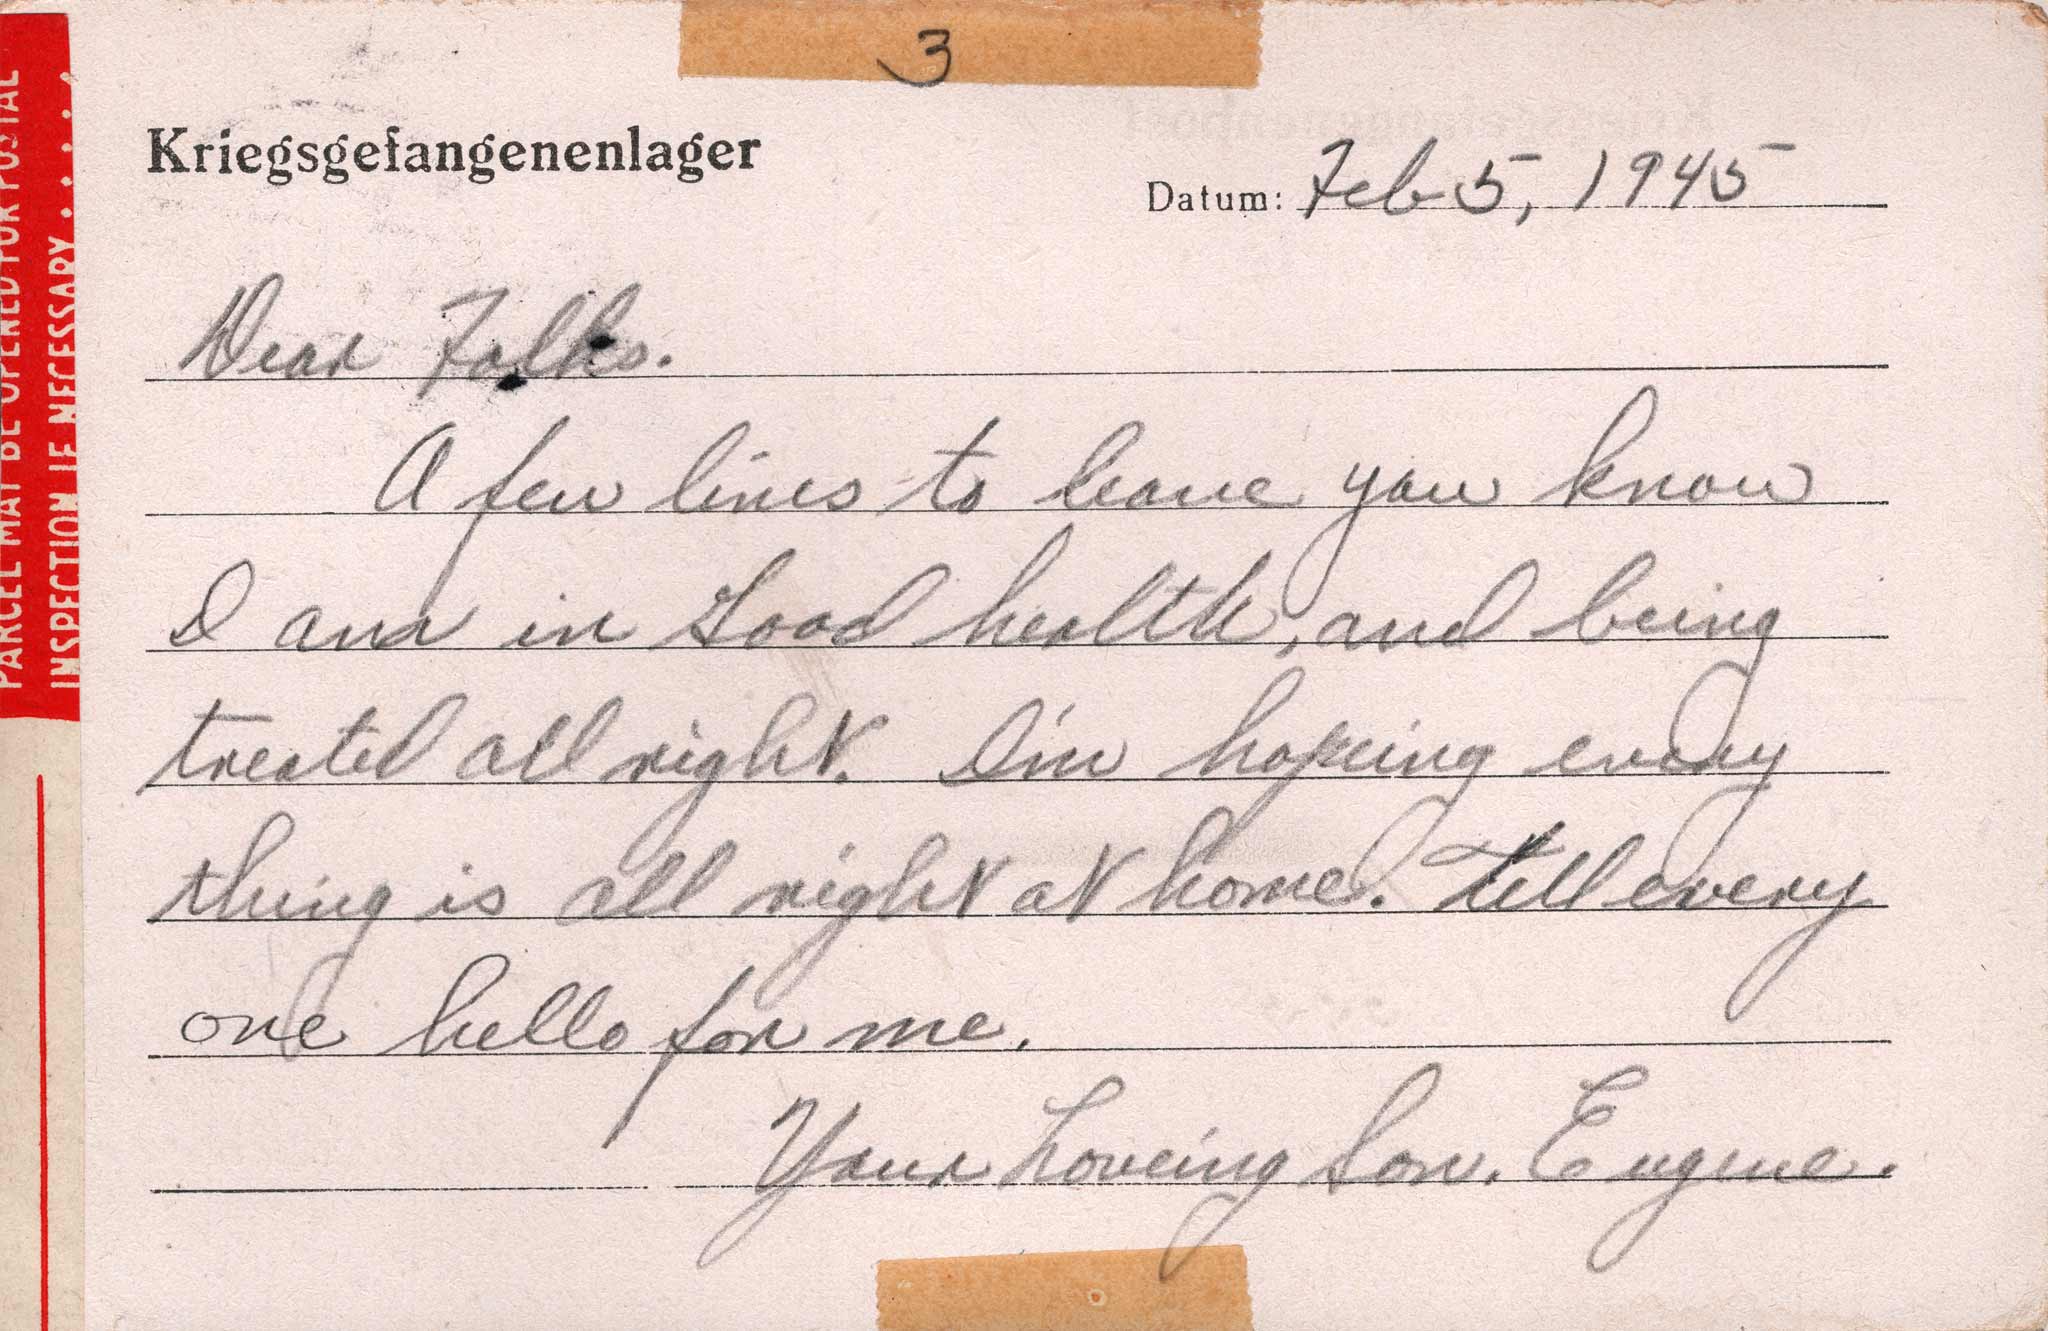 3
Kriegsgefangenenlager
Datum: Feb 5, 1945
Dear Folks.
A few lines to leave you know
I am in good health, and being
treated all right. I'm hopeing every
thing is all right at home. Tell every
one hello for me.
Your Loveing Son. Eugene.
PARCEL MAY BE OPENED FOR POSTAL
INSPECTION IF NECESSARY.....